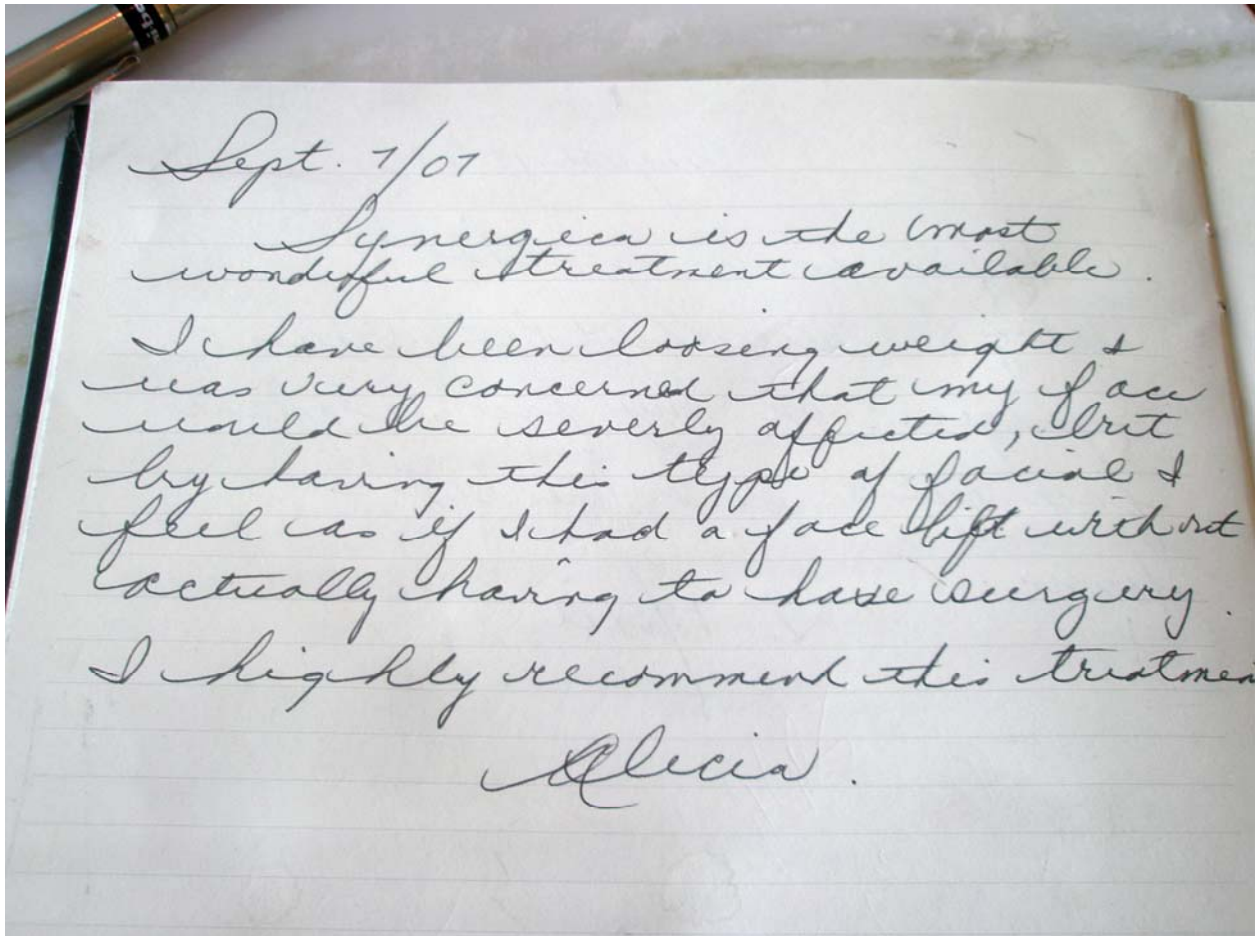 Sept. 7/07
Synergica is the most
wonderful treatment available.
I have been loosing weight &
was very concerned that my face
would be severly affected, but
by having this type of facial I
feel as if I had a face lift without
actually having to have surgery.
I highly recommend this treatmen
Alicia.